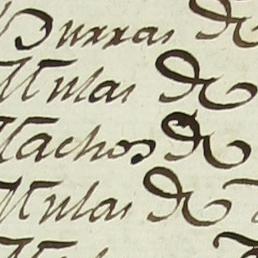 Burras de
Mulas de
Machos de
Mulas de